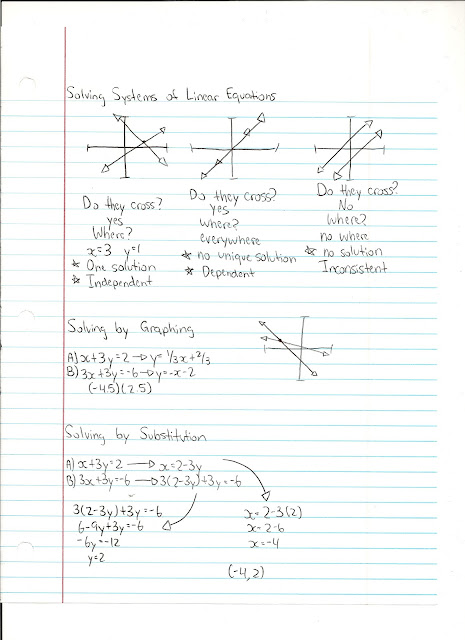 Solving Systems of Linear Equations
Do they cross?
yes
Where?
x=3 y=1
* One solution
* Independent
Do they cross?
yes
Where?
everywhere
* no unique solution
* Dependent
Do they cross?
No
Where?
no where
* no solution
Inconsistent
Solving by Graphing
A) x+3y=2 → y= 1/3x+2/3
B) 3x+3y=-6 → y=-x-2
(-4.5)(2.5)
Solving by Substitution
A) x+3y=2 → x=2-3y
B) 3x+3y=-6 → 3(2-3y)+3y=-6
3(2-3y)+3y=-6
6-9y+3y=-6
-6y=-12
y=2
x=2-3(2)
x=2-6
x=-4
(-4,2)